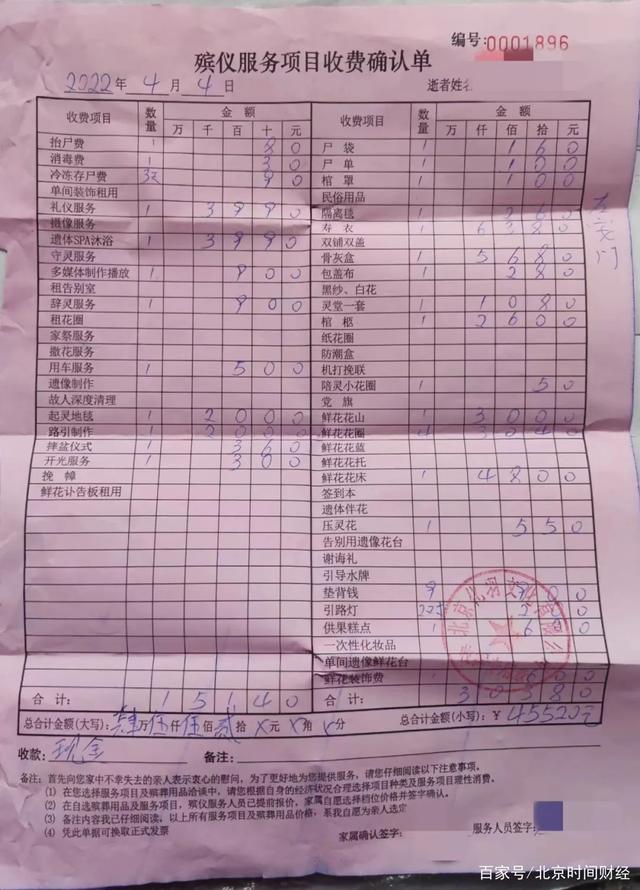 编号:0001896
殡仪服务项目收费确认单
2022年4月4日 逝者姓名
收费项目 数量 金额 万 千 百 十 元
抬尸费 1 80
消毒费 1 30
冷冻存尸费 3天 90
单间装饰租用
礼仪服务 1 3990
摄像服务
遗体SPA沐浴 1 3990
守灵服务
多媒体制作播放 1 900
租告别室
辞灵服务 1 900
租花圈
家祭服务
撒花服务
用车服务 1 500
遗像制作
故人深度清理
起灵地毯 1 2000
路引制作 1 2000
摔盆仪式 1 360
开光服务 1 300
挽幛
鲜花讣告板租用
合计: 15140
收费项目 数量 金额 万 仟 佰 拾 元
尸袋 1 160
尸单 1 100
棺罩 1 100
民俗用品
隔离毯 1 260
寿衣 1 6380
双铺双盖
骨灰盒 1 5680
包盖布 1 280
黑纱、白花
灵堂一套 1 1080
棺柩 1 2600
纸花圈
防潮盒
机打挽联
陪灵小花圈 1 50
党旗
鲜花花山 1 3000
鲜花花圈 4
鲜花花蓝
鲜花花托
鲜花花床 1 4800
签到本
遗体伴花
压灵花 1 550
告别用遗像花台
谢诲礼
引导水牌
垫背钱 9
引路灯
供果糕点 1
一次性化妆品
单间遗像鲜花台
鲜花装饰费
合计: 30380
总合计金额(大写): 肆万伍仟伍佰贰拾X元X角X分 总合计金额(小写):¥45520元
收款: 现金 备注:
备注:首先向您家中不幸失去的亲人表示衷心的慰问,为了更好地为您提供服务,请您仔细阅读以下注意事项。
(1) 在您选择服务项目及殡葬用品洽谈中,请您根据自身的经济状况合理选择项目种类及服务项目理性消费。
(2) 在自选殡葬用品及服务项目,殡仪服务人员已提前报价,家属自愿选择档位价格并签字确认。
(3) 备注内容我已仔细阅读,以上所有服务项目及殡葬用品价格,系我自愿为亲人选定
(4) 凭此单据可换取正式发票
家属确认签字: 服务人员签字:
百家号/北京时间财经